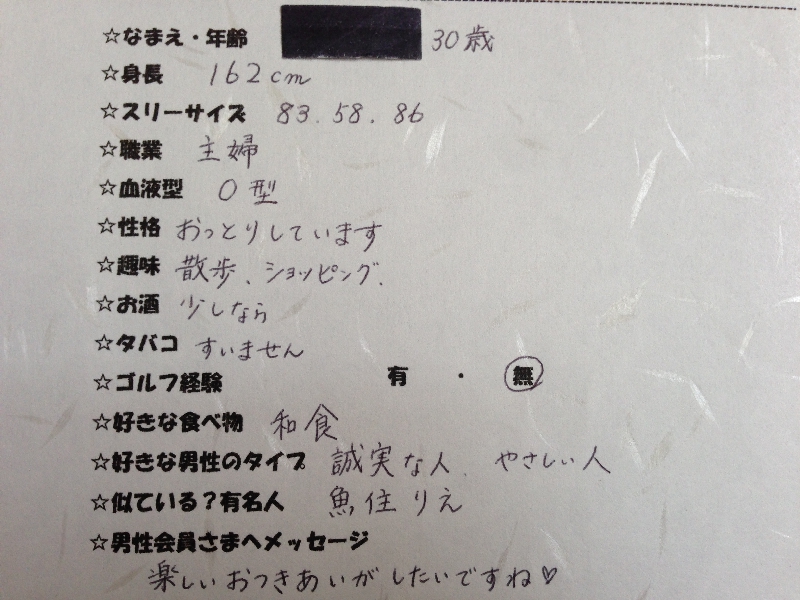 ☆なまえ・年齢 30歳
☆身長 162cm
☆スリーサイズ 83.58.86
☆職業 主婦
☆血液型 O型
☆性格 おっとりしています
☆趣味 散歩、ショッピング.
☆お酒 少しなら
☆タバコ すいません
☆ゴルフ経験 有 ・ 無
☆好きな食べ物 和食
☆好きな男性のタイプ 誠実な人、やさしい人
☆似ている?有名人 魚住りえ
☆男性会員さまへメッセージ
楽しいおつきあいがしたいですね♡